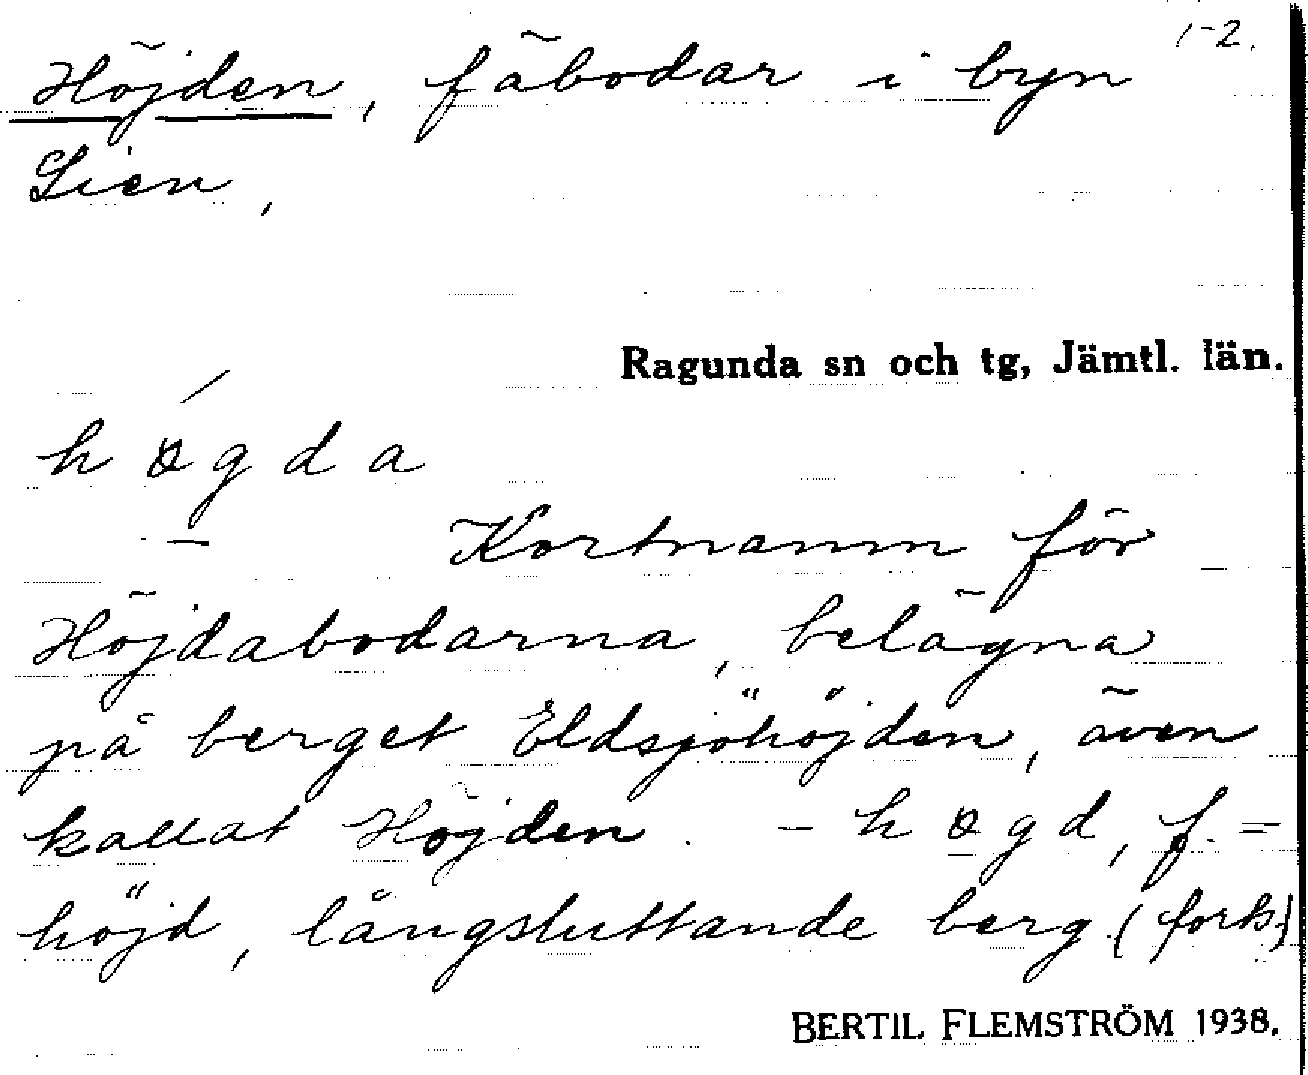 1-2.
Höjden, fäbodar i byn
Lien,
Ragunda sn och tg, Jämtl. län.
högda
Kortnamn för
Höjdabodarna, belägna
på berget Eldsjöhöjden, även
kallat Höjden. - högd, f. =
höjd, långsluttande berg (forts.)
BERTIL FLEMSTRÖM 1938.